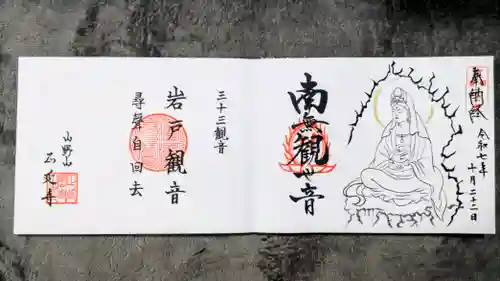 奉納経
令和七年
十月二十二日
南無観世音
三十三観音
岩戸観音
尋聲自回去
山野山
石延寺